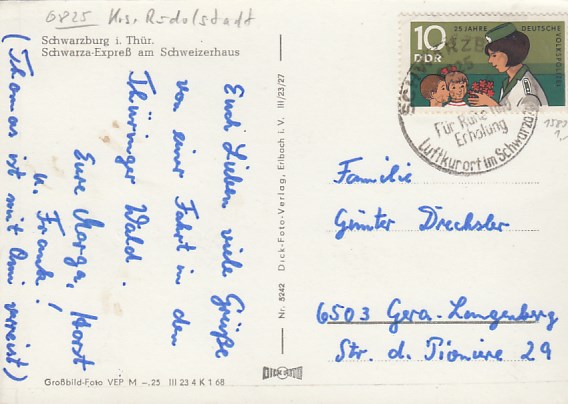 6825 Krs. Rudolstadt
Schwarzburg i. Thür.
Schwarza-Expreß am Schweizerhaus
Euch Lieben viele Grüße
von einer Fahrt in den
Thüringer Wald.
Eure Marga, Horst
u. Frank!
(Thomas ist mit Omi verreist)
Großbild-Foto VEP M –.25 III 23 4 K 1 68
Nr. 5242 Dick-Foto-Verlag, Erlbach i. V. III/23/27
DICK FOTO
10
DDR
25 JAHRE DEUTSCHE
VOLKSPOLIZEI
Für Ruhe und
Erholung
Luftkurort im Schwarzatal
1589
Familie
Günter Drechsler
6503 Gera-Langenberg
Str. d. Pioniere 29